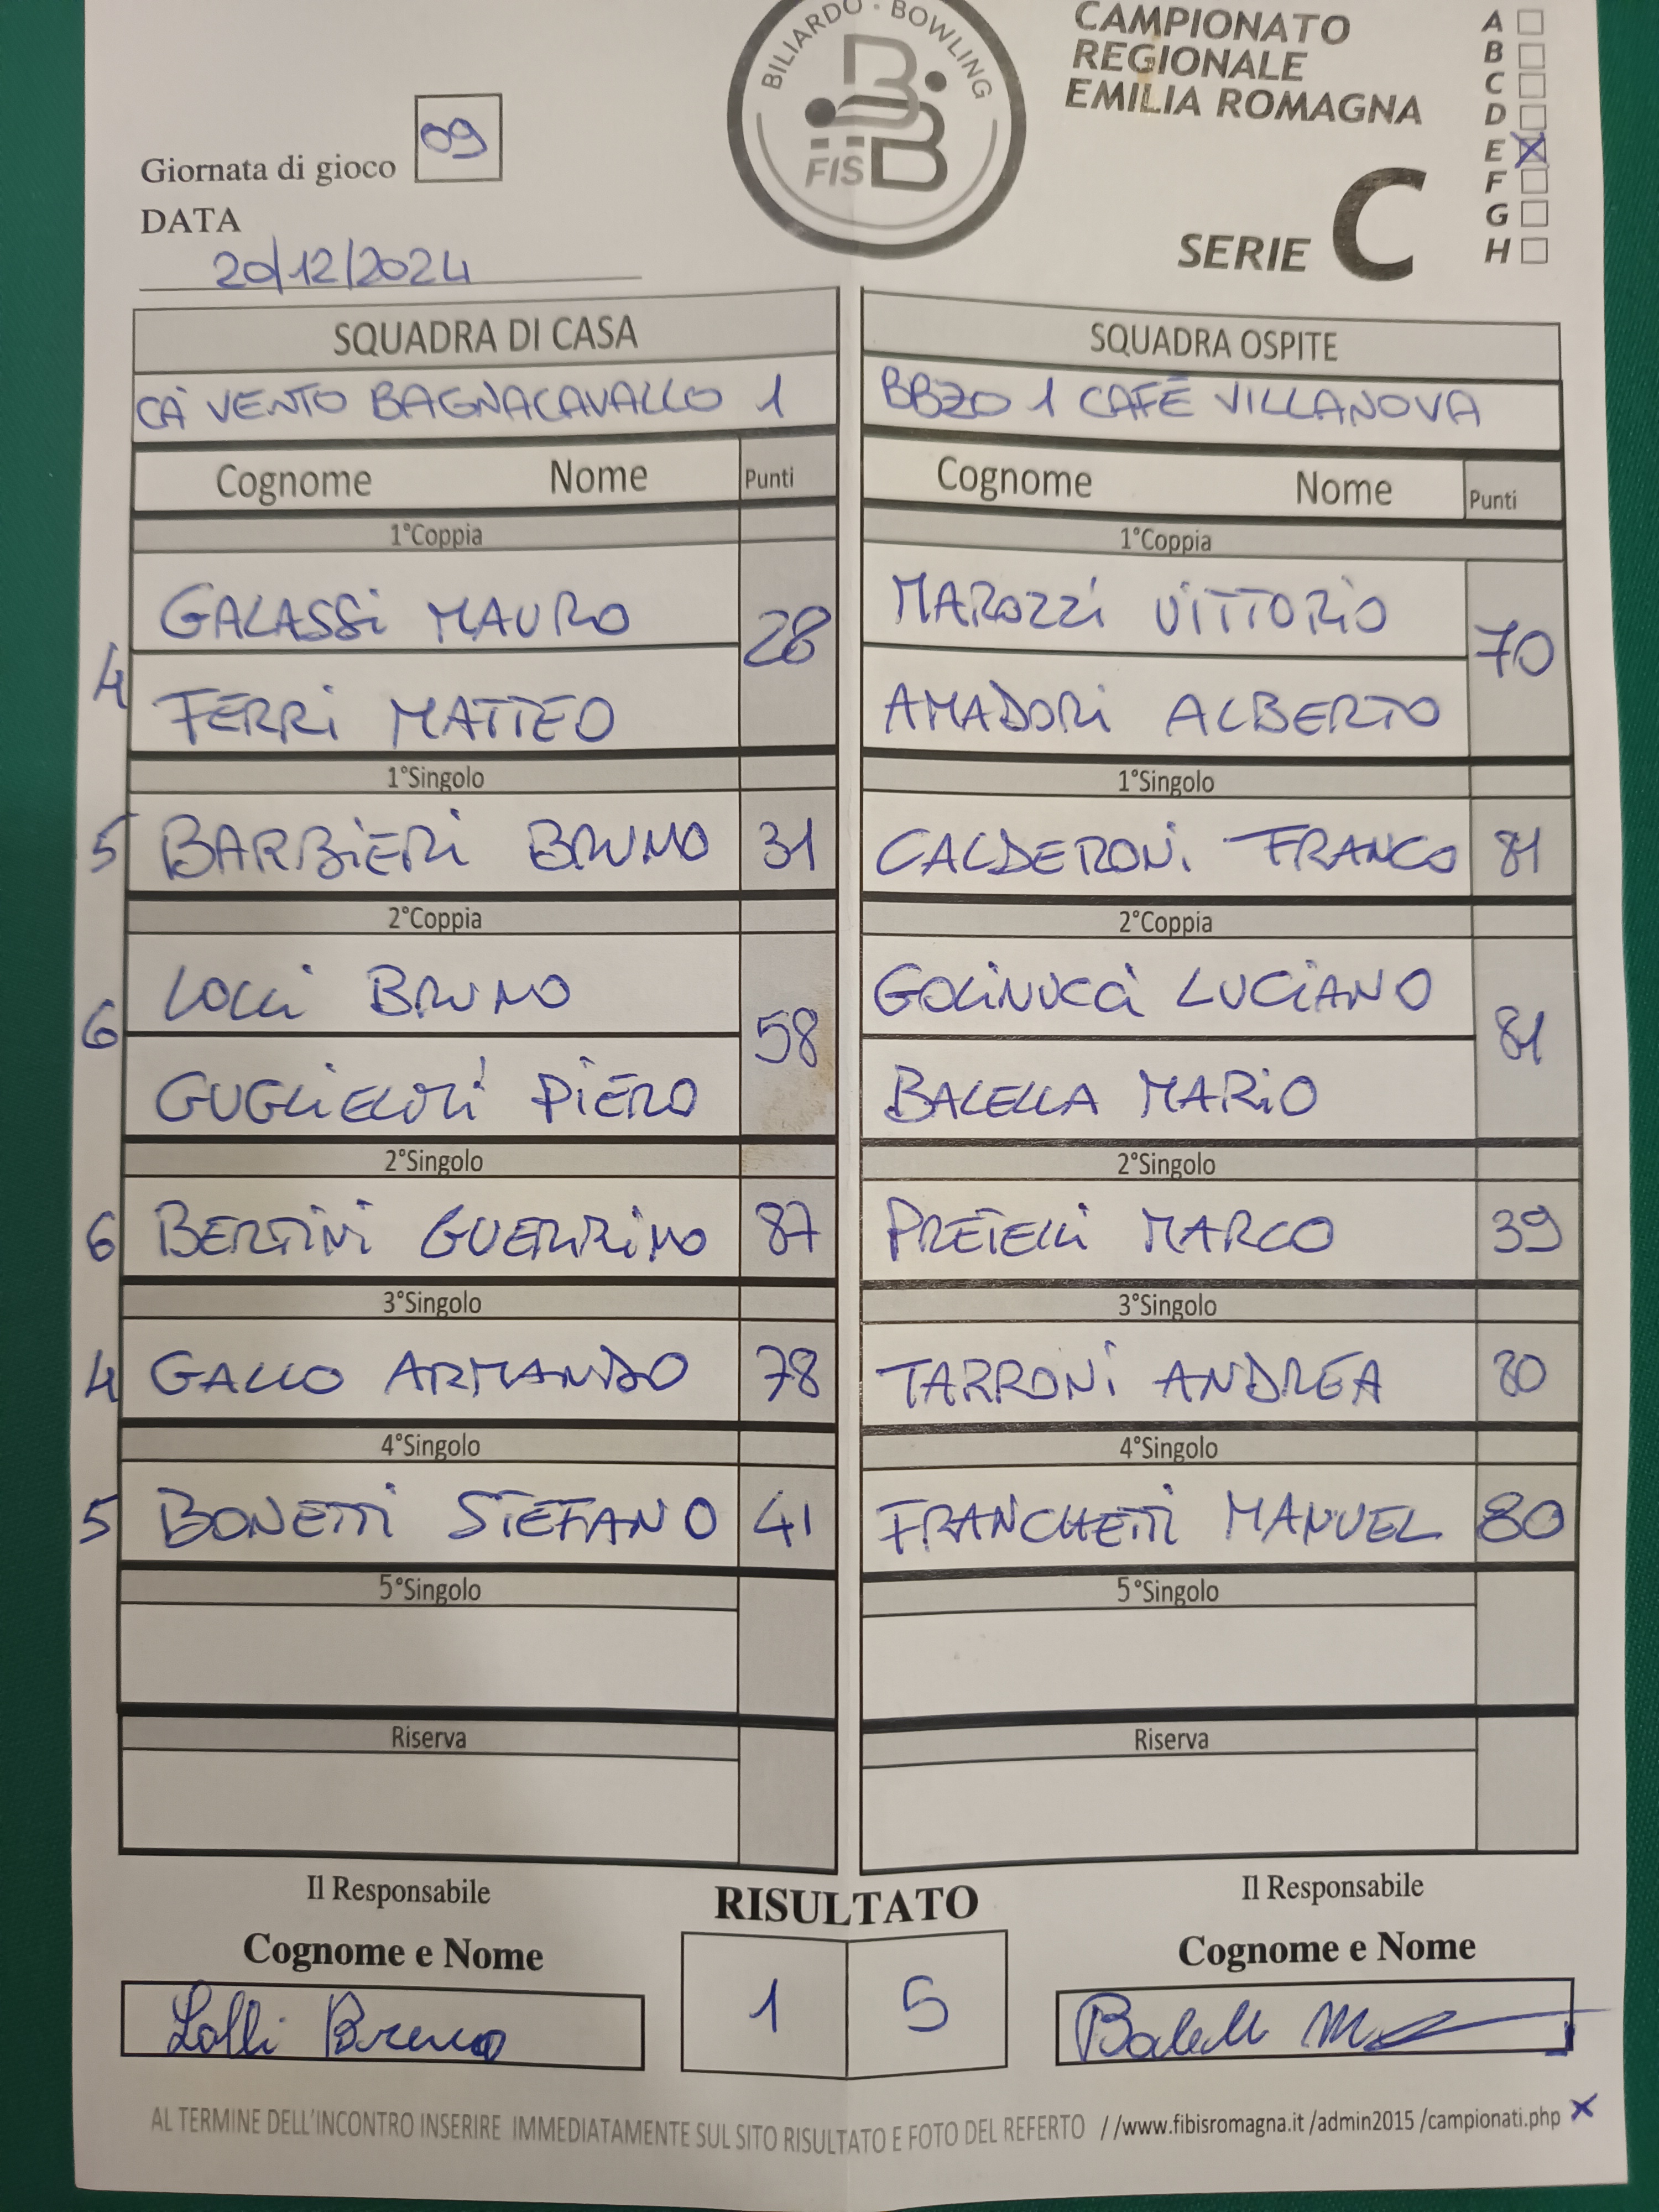 BILIARDO · BOWLING
FIS
CAMPIONATO
REGIONALE
EMILIA ROMAGNA
SERIE C
A
B
C
D
E X
F
G
H
Giornata di gioco 09
DATA
20/12/2024
SQUADRA DI CASA SQUADRA OSPITE
CA' VENTO BAGNACAVALLO 1 BBZO 1 CAFÉ VILLANOVA
Cognome Nome Punti Cognome Nome Punti
1°Coppia 1°Coppia
GALASSI MAURO 28 MAROZZI VITTORIO 70
4 FERRI MATTEO AMADORI ALBERTO
1°Singolo 1°Singolo
5 BARBIERI BRUNO 31 CALDERONI FRANCO 81
2°Coppia 2°Coppia
LOLLI BRUNO 58 GOLINUCCI LUCIANO 81
6 GUGLIELMI PIERO BALELLA MARIO
2°Singolo 2°Singolo
6 BERTINI GUERRINO 87 PRETELLI MARCO 39
3°Singolo 3°Singolo
4 GALLO ARMANDO 78 TARRONI ANDREA 80
4°Singolo 4°Singolo
5 BONETTI STEFANO 41 FRANCHETTI MANUEL 80
5°Singolo 5°Singolo
Riserva Riserva
Il Responsabile RISULTATO Il Responsabile
Cognome e Nome Cognome e Nome
Lolli Bruno 1 5 Balell M
AL TERMINE DELL'INCONTRO INSERIRE IMMEDIATAMENTE SUL SITO RISULTATO E FOTO DEL REFERTO //www.fibisromagna.it /admin2015 /campionati.php X